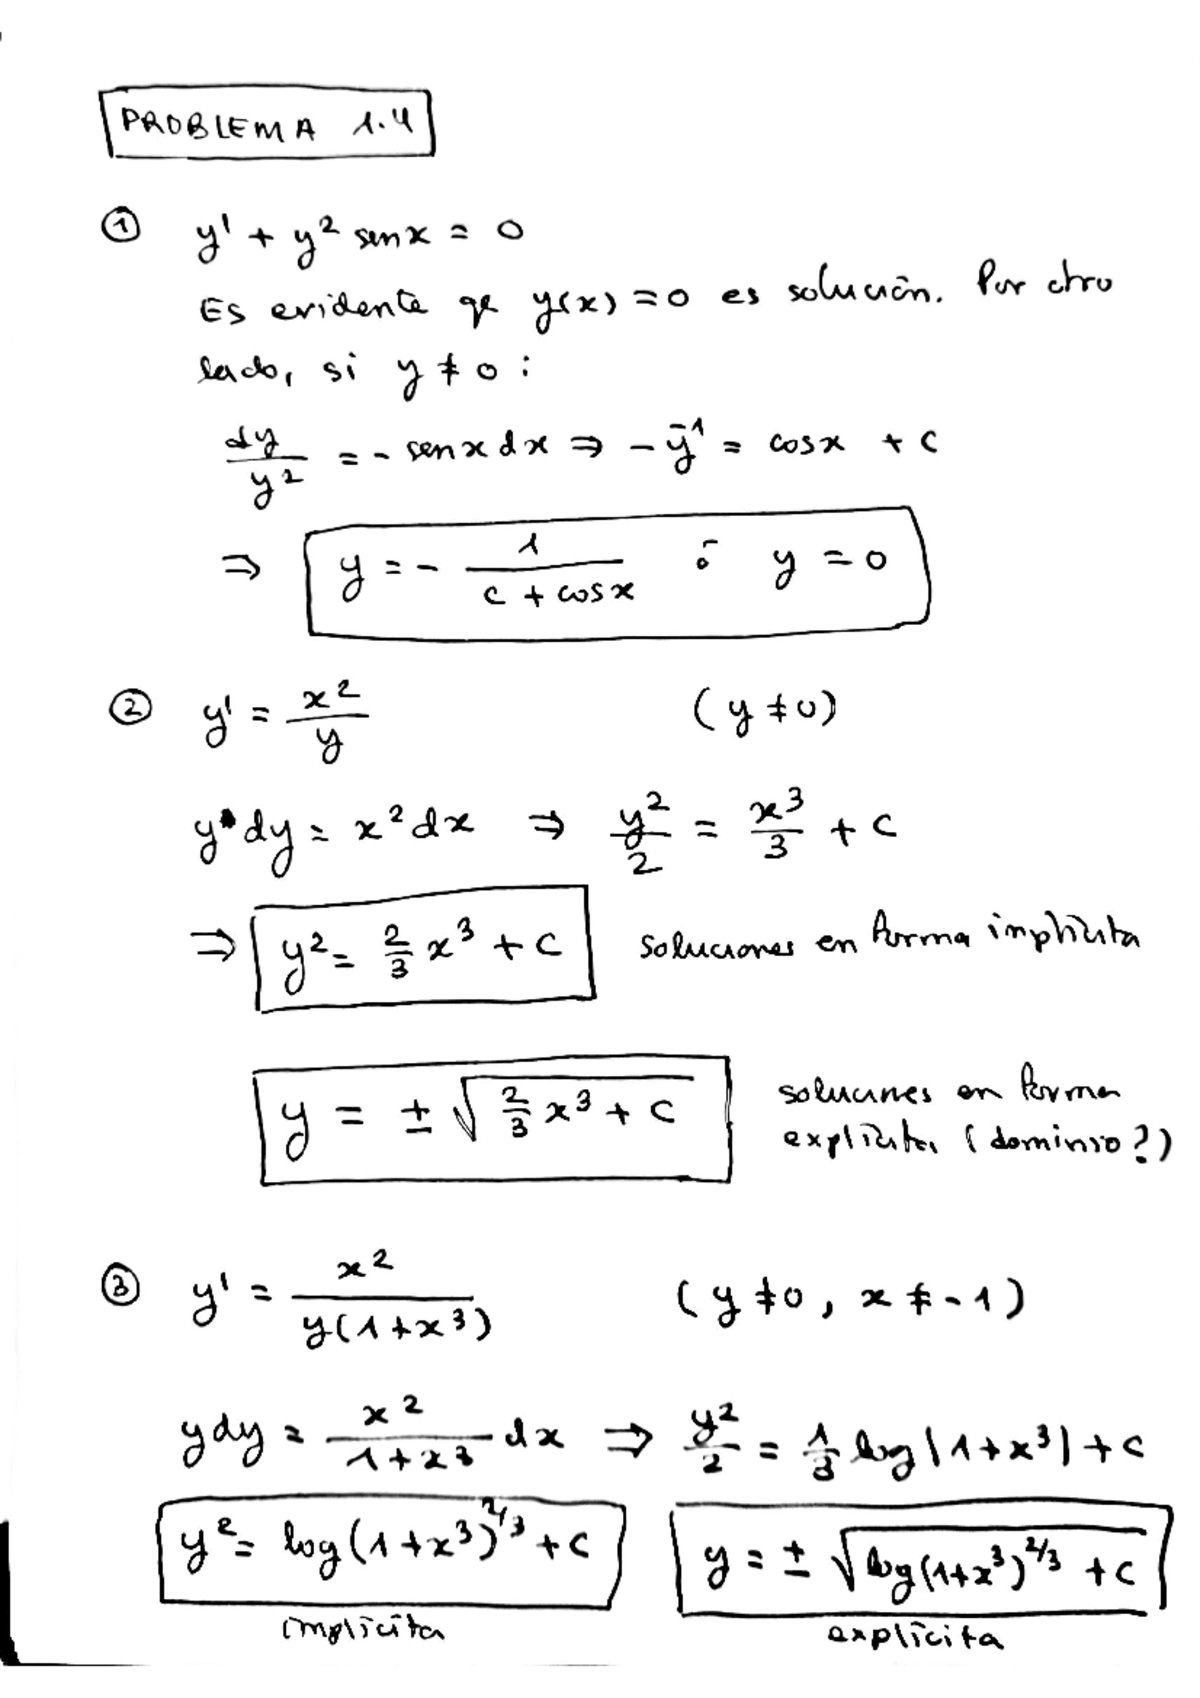 PROBLEMA 1.4
① y' + y² sen x = 0
Es evidente qe y(x) = 0 es solución. Por otro
lado, si y ≠ 0 :
dy/y² = - sen x dx ⇒ - y⁻¹ = cos x + c
⇒ y = - 1/(c + cos x) ó y = 0
② y' = x²/y (y ≠ 0)
y dy = x² dx ⇒ y²/2 = x³/3 + c
⇒ y² = 2/3 x³ + c soluciones en forma implícita
y = ± √(2/3 x³ + c) soluciones en forma
explícita (dominio?)
③ y' = x²/(y(1+x³)) (y ≠ 0, x ≠ -1)
y dy = x²/(1+x³) dx ⇒ y²/2 = 1/3 log|1+x³| + c
y² = log(1+x³)^2/3 + c y = ± √(log(1+x³)^2/3 + c)
implícita explícita